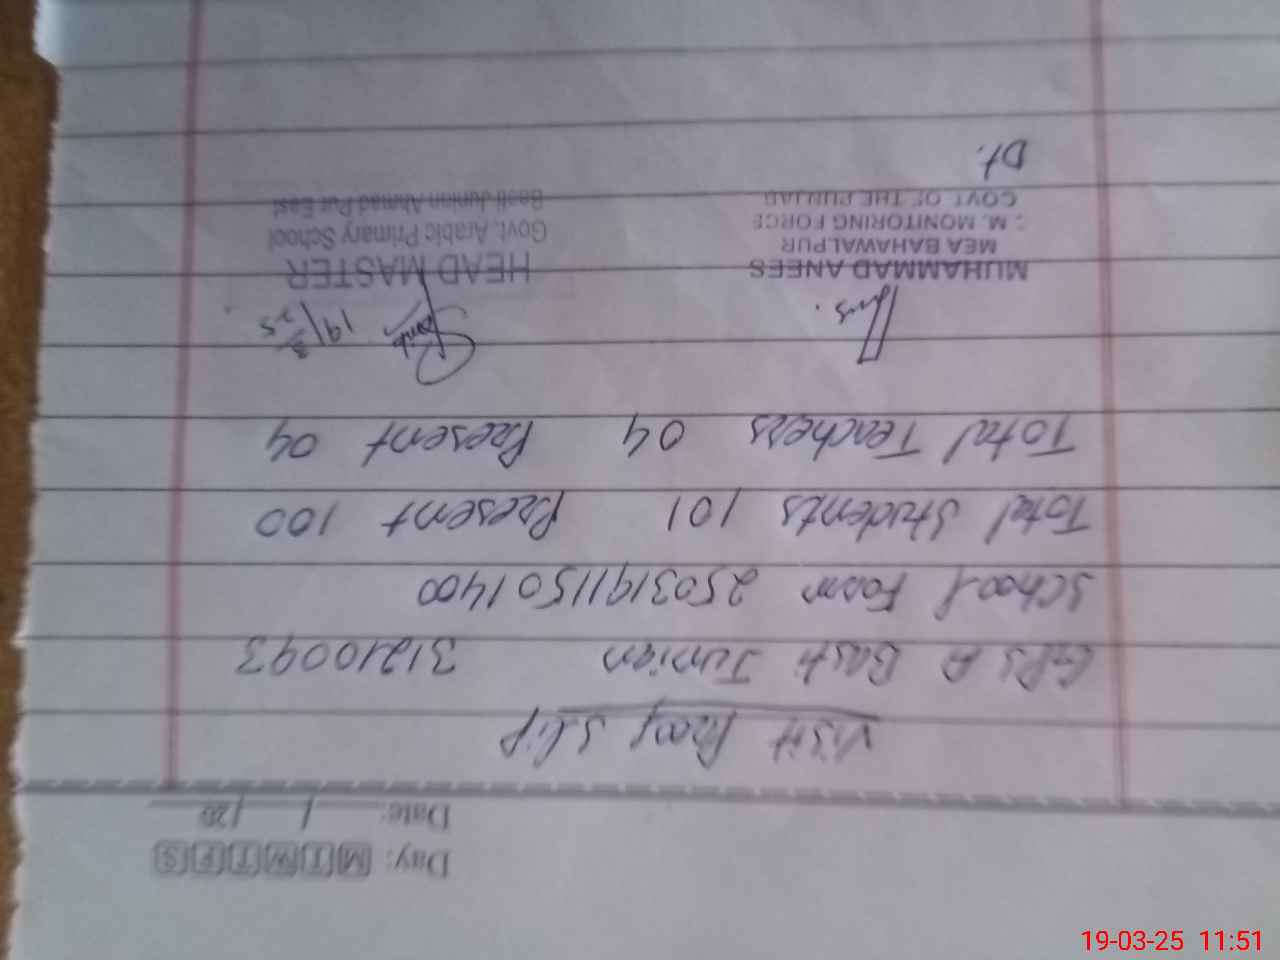 Day: M T W T F S
Date: / /20
Visit Proof Slip
GPS A Basti Junian 31210093
School Form 25031911501400
Total Students 101 Present 100
Total Teachers 04 Present 04
19/3/25
MUHAMMAD ANEES
MEA BAHAWALPUR
C. M. MONITORING FORCE
GOVT OF THE PUNJAB
Dt.
HEAD MASTER
Govt. Arabic Primary School
Basti Junian Ahmad Pur East
19-03-25 11:51